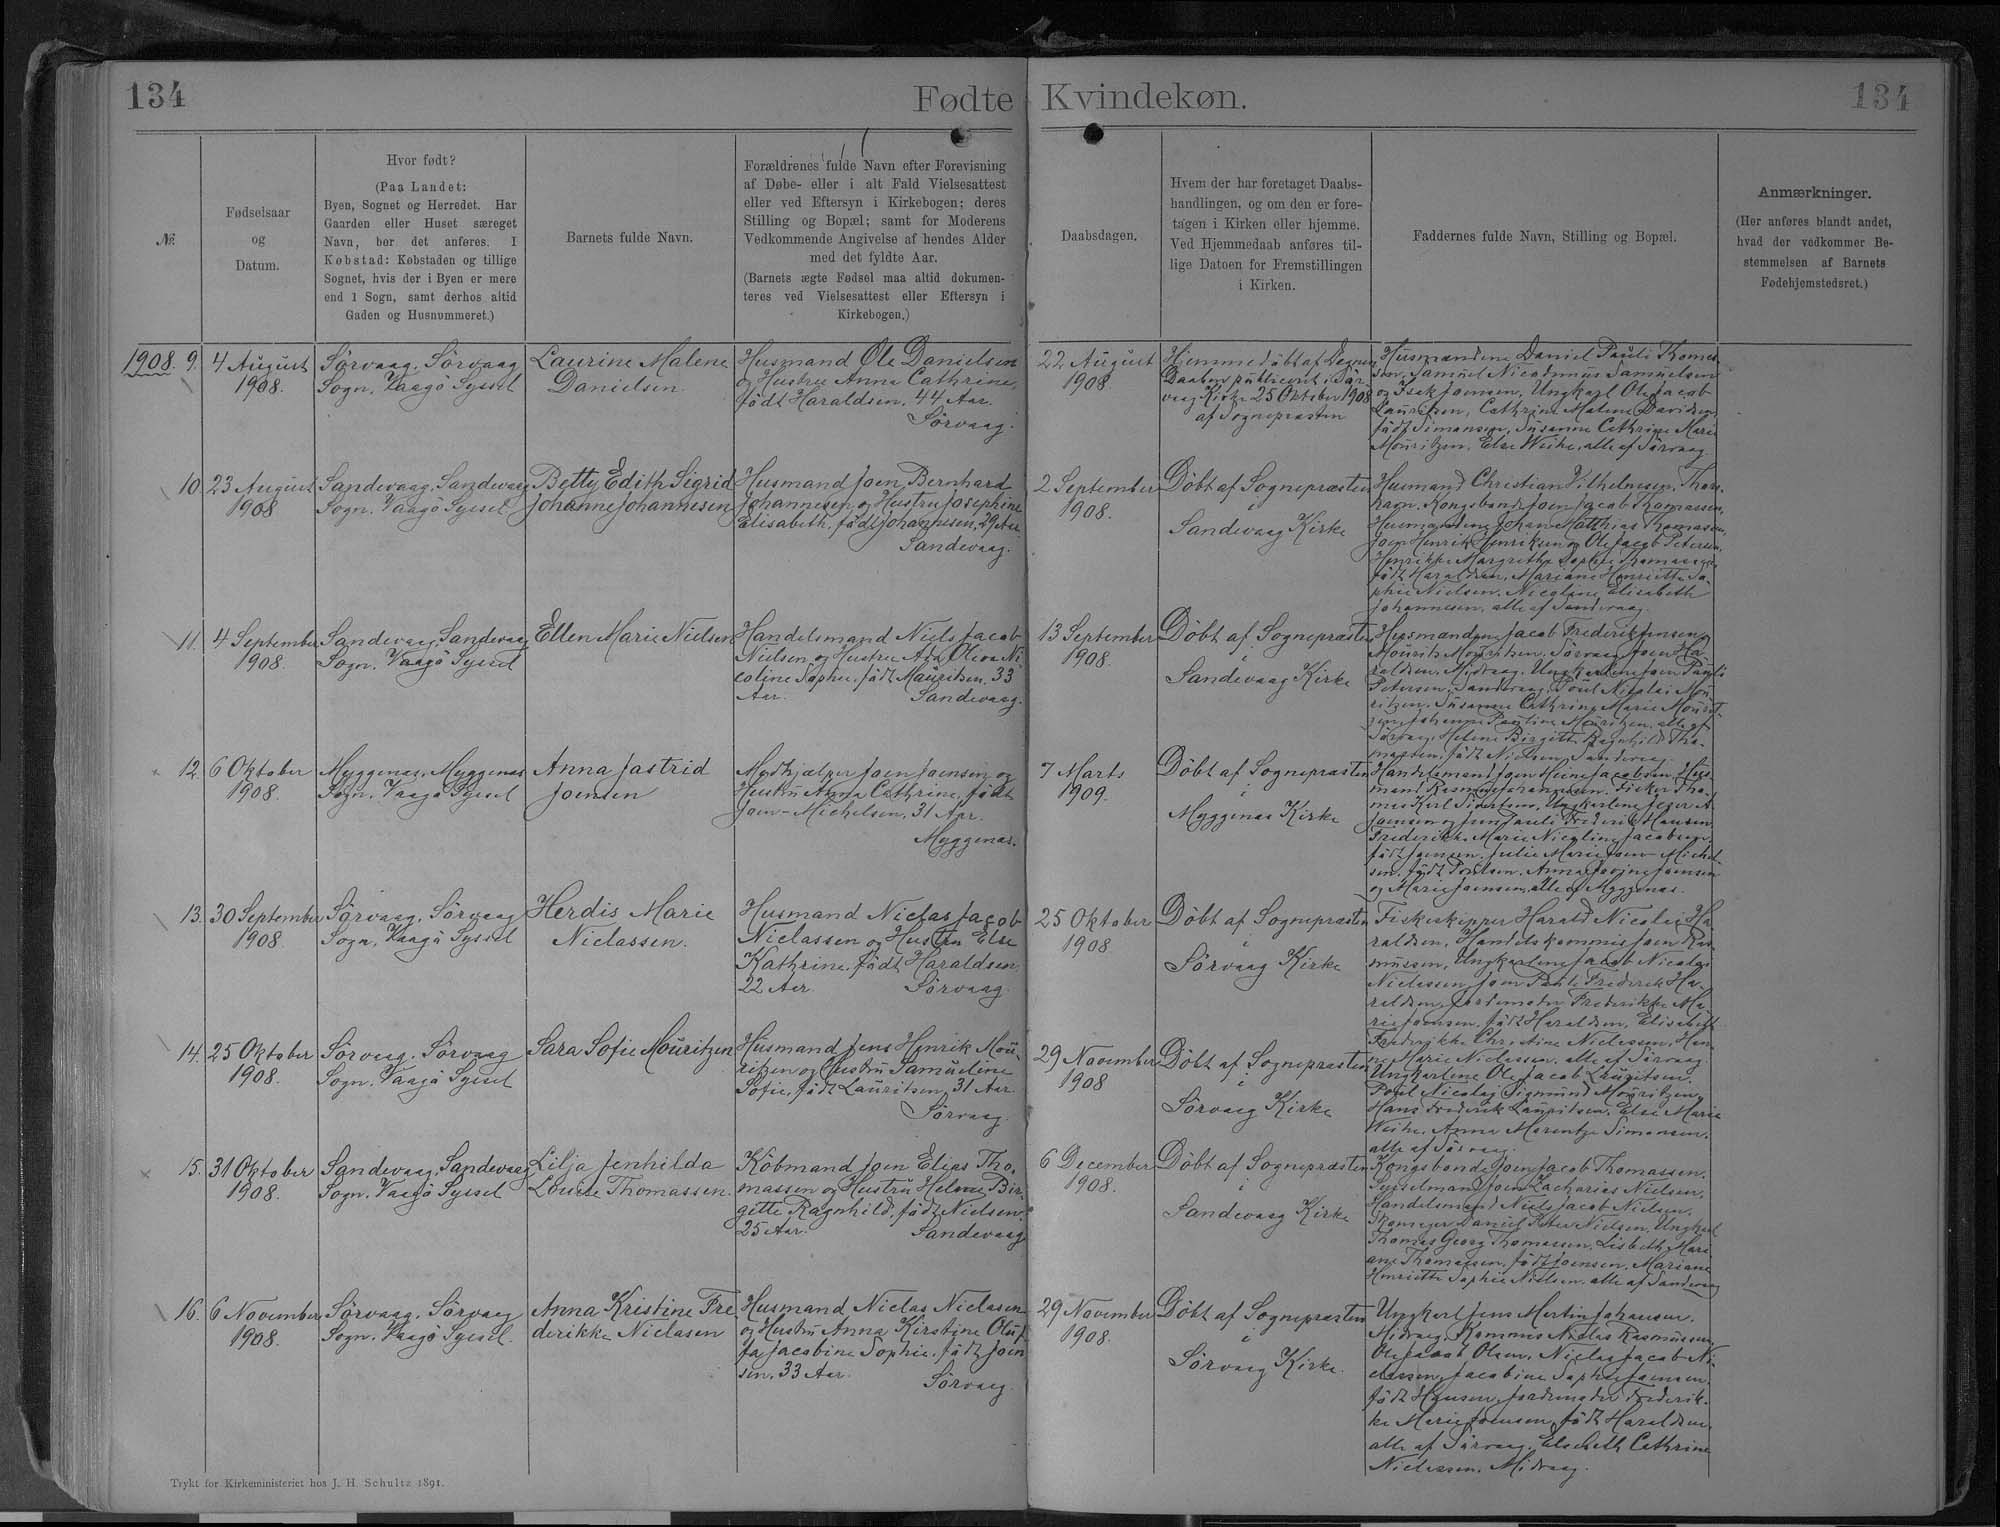 134
Fødte
Kvindekøn.
134
№
Fødselsaar
og
Datum.
Hvor født?
(Paa Landet:
Byen, Sognet og Herredet. Har
Gaarden eller Huset særeget
Navn, bør det anføres. I
Købstad: Købstaden og tillige
Sognet, hvis der i Byen er mere
end 1 Sogn, samt derhos altid
Gaden og Husnummeret.)
Barnets fulde Navn.
Forældrenes fulde Navn efter Forevisning
af Døbe- eller i alt Fald Vielsesattest
eller ved Eftersyn i Kirkebogen; deres
Stilling og Bopæl; samt for Moderens
Vedkommende Angivelse af hendes Alder
med det fyldte Aar.
(Barnets ægte Fødsel maa altid dokumen-
teres ved Vielsesattest eller Eftersyn i
Kirkebogen.)
Daabsdagen.
Hvem der har foretaget Daabs-
handlingen, og om den er fore-
tagen i Kirken eller hjemme.
Ved Hjemmedaab anføres til-
lige Datoen for Fremstillingen
i Kirken.
Faddernes fulde Navn, Stilling og Bopæl.
Anmærkninger.
(Her anføres blandt andet,
hvad der vedkommer Be-
stemmelsen af Barnets
Fødehjemstedsret.)
1908. 9.
4 August
1908.
Sørvaag, Sørvaag
Sogn, Vaagø Syssel
Laurine Malene
Danielsen
Husmand Ole Danielsen
og Hustru Anna Cathrine,
født Haraldsen, 44 Aar.
Sørvaag.
22 August
1908
Hjemmedøbt af Degnen
Daaben publiceret i Sør-
vaag Kirke 25 Oktober 1908
af Sognepræsten
Husmændene Daniel Pauli Thomas-
sen, Samuel Nicodemus Samuelsen
og Isak Joensen, Ungkarl Ole Jacob
Lauritsen, Cathrine Malene Davidsen,
født Simonsen, Susanne Cathrine Marie
Mouritzen, Else Weihe, alle af Sørvaag.
10.
23 August
1908
Sandevaag, Sandevaag
Sogn. Vaagø Syssel
Betty Edith Sigrid
Johanne Johannesen
Husmand Joen Bernhard
Johannesen og Hustru Josephine
Elisabeth, født Johannesen, 29 Aar
Sandevaag.
2 September
1908.
Døbt af Sognepræsten
i
Sandevaag Kirke
Husmand Christian Vilhelmsen, Thors-
havn, Kongsbonde Joen Jacob Thomassen,
Husmændene Johan Matthias Thomassen,
Joen Henrik Henriksen og Ole Jacob Petersen,
Henrikke Margrethe Sophie Thomassen,
født Haraldsen, Mariane Henriette So-
phie Nielsen, Nicoline Elisabeth
Johannesen, alle af Sandevaag.
11.
4 September
1908.
Sandevaag, Sandevaag
Sogn. Vaagø Syssel
Ellen Marie Nielsen
Handelsmand Niels Jacob
Nielsen og Hustru Ada Oliva Ni-
coline Sophie, født Mauritsen, 33
Aar.
Sandevaag.
13 September
1908.
Døbt af Sognepræsten
i
Sandevaag Kirke
Husmændene Jacob Frederik Jensen
Mourits Mouritsen, Sørvaag, Joen Ha-
raldsen, Midvaag. Ungkarlene Joen Pauli
Petersen, Sandevaag, Poul Nicolai Mou-
ritzen, Susanne Cathrine Marie Mourit-
zen, Johanne Pauline Mouritzen, alle af
Sørvaag, Helene Birgitte Ragnhild Tho-
massen, født Nielsen, Sandevaag.
12.
6 Oktober
1908.
Myggenæs, Myggenæs
Sogn. Vaagø Syssel
Anna Jastrid
Joensen
Medhjælper Joen Joensen og
Hustru Anna Cathrine, født
Joen-Michelsen, 31 Aar.
Myggenæs.
7 Marts
1909.
Døbt af Sognepræsten
i
Myggenæs Kirke
Handelsmand Joen Heine Jacobsen, Hus-
mand Rasmus Johannesen, Fisker Tho-
mas Karl Sivertsen, Ungkarlene
Joensen og Joen Pauli Frederik Hansen
Frederikke Marie Nicoline Jacobsen,
født Joensen, Julie Marie Joen-Michel-
sen, født Poulsen, Anna Joensen
og Marie Joensen, alle af Myggenæs.
13.
30 September
1908.
Sørvaag, Sørvaag
Sogn, Vaagø Syssel
Herdis Marie
Niclassen.
Husmand Niclas Jacob
Niclassen og Hustru Else
Kathrine, født Haraldsen
22 Aar.
Sørvaag.
25 Oktober
1908
Døbt af Sognepræsten
i
Sørvaag Kirke
Fiskeskipper Harald Nicolai Ha-
raldsen, Handelskommis Joen Ras-
mussen, Ungkarlene Jacob Nicolai
Niclassen, Joen Pauli Frederik Ha-
raldsen, Jordemoder Frederikke Ma-
rie Joensen, født Haraldsen, Elisabeth
Fredrikke Christine Niclassen, Han-
ne Marie Niclassen, alle af Sørvaag.
14.
25 Oktober
1908.
Sørvaag, Sørvaag
Sogn. Vaagø Syssel
Sara Sofie Mouritzen
Husmand Jens Henrik Mou-
ritzen og Hustru Samueline
Sofie, født Lauritsen, 31 Aar.
Sørvaag.
29 November
1908
Døbt af Sognepræsten
i
Sørvaag Kirke
Ungkarlene Ole Jacob Lauritsen,
Poul Nicolaj Sigmund Mouritzen,
Hans Frederik Lauritsen, Else Marie
Weihe, Anna Marentze Simonsen,
alle af Sørvaag.
15.
31 Oktober
1908.
Sandevaag, Sandevaag
Sogn. Vaagø Syssel
Lilja Jenhilda
Louise Thomassen.
Købmand Joen Elias Tho-
massen og Hustru Helene Bir-
gitte Ragnhild, født Nielsen,
25 Aar.
Sandevaag
6 December
1908.
Døbt af Sognepræsten
i
Sandevaag Kirke
Kongsbonde Joen Jacob Thomassen,
Sysselmand Joen Zacharias Nielsen,
Handelsmand Niels Jacob Nielsen,
Skomager Daniel Peter Nielsen, Ungkarl
Thomas Georg Thomassen, Lisbeth Mari-
ane Thomassen, født Joensen, Mariane
Henriette Sophie Nielsen, alle af Sandevaag
16.
6 November
1908.
Sørvaag, Sørvaag
Sogn. Vaagø Syssel.
Anna Kristine Fre-
derikke Niclasen
Husmand Niclas Niclasen
og Hustru Anna Kirstine Oluf-
fa Jacobine Sophie, født Joen-
sen, 33 Aar.
Sørvaag.
29 November
1908.
Døbt af Sognepræsten
i
Sørvaag Kirke.
Ungkarl Jens Martin Johansen,
Midvaag, Kommis Niclas Rasmussen,
Ole Jacob Olsen, Niclas Jacob Ni-
classen, Jacobine Sophie Joensen,
født Hansen, Jordemoder Frederik-
ke Marie Joensen, født Haraldsen,
alle af Sørvaag, Elsebeth Cathrine
Niclassen, Midvaag.
Trykt for Kirkeministeriet hos J. H. Schultz 1891.